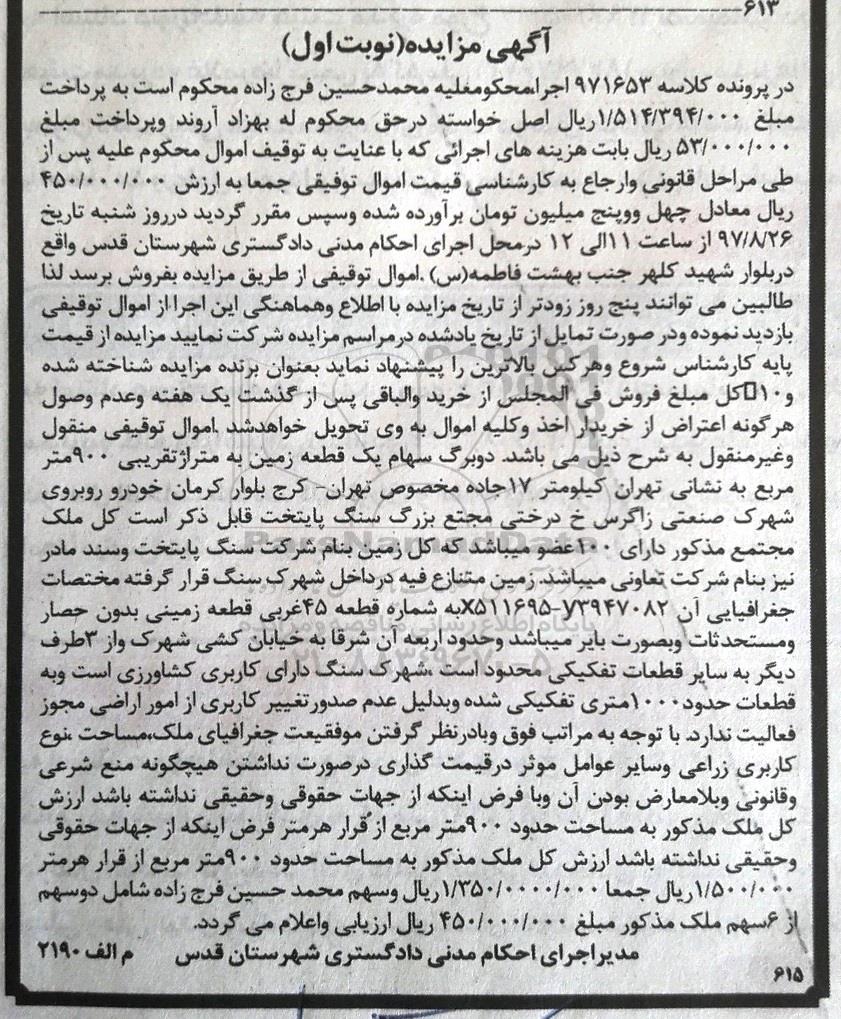 ۶۱۳
آگهی مزایده(نوبت اول)
در پرونده کلاسه ۹۷۱۶۵۳ اجرا،محکومعلیه محمدحسین فرج زاده محکوم است به پرداخت
مبلغ ۱/۵۱۴/۳۹۴/۰۰۰ریال اصل خواسته درحق محکوم له بهزاد آروند وپرداخت مبلغ
۵۳/۰۰۰/۰۰۰ ریال بابت هزینه های اجرائی که با عنایت به توقیف اموال محکوم علیه پس از
طی مراحل قانونی وارجاع به کارشناسی قیمت اموال توقیفی جمعا به ارزش ۴۵۰/۰۰۰/۰۰۰
ریال معادل چهل ووپنج میلیون تومان برآورده شده وسپس مقرر گردید درروز شنبه تاریخ
۹۷/۸/۲۶ از ساعت ۱۱الی ۱۲ درمحل اجرای احکام مدنی دادگستری شهرستان قدس واقع
دربلوار شهید کلهر جنب بهشت فاطمه(س) .اموال توقیفی از طریق مزایده بفروش برسد لذا
طالبین می توانند پنج روز زودتر از تاریخ مزایده با اطلاع وهماهنگی این اجرا از اموال توقیفی
بازدید نموده ودر صورت تمایل از تاریخ یادشده درمراسم مزایده شرکت نمایید مزایده از قیمت
پایه کارشناس شروع وهرکس بالاترین را پیشنهاد نماید بعنوان برنده مزایده شناخته شده
و۱۰کل مبلغ فروش فی المجلس از خرید والباقی پس از گذشت یک هفته وعدم وصول
هرگونه اعتراض از خریدار اخذ وکلیه اموال به وی تحویل خواهدشد .اموال توقیفی منقول
وغیرمنقول به شرح ذیل می باشد. دوبرگ سهام یک قطعه زمین به متراژتقریبی ۹۰۰متر
مربع به نشانی تهران کیلومتر ۱۷جاده مخصوص تهران- کرج بلوار کرمان خودرو روبروی
شهرک صنعتی زاگرس خ درختی مجتع بزرگ سنگ پایتخت قابل ذکر است کل ملک
مجتمع مذکور دارای ۱۰۰عضو میباشد که کل زمین بنام شرکت سنگ پایتخت وسند مادر
نیز بنام شرکت تعاونی میباشد. زمین متنازع فیه درداخل شهرک سنگ قرار گرفته مختصات
جغرافیایی آن X۵۱۱۶۹۵-y۳۹۴۷۰۸۲به شماره قطعه ۴۵غربی قطعه زمینی بدون حصار
ومستحدثات وبصورت بایر میباشد وحدود اربعه آن شرقا به خیابان کشی شهرک واز ۳طرف
دیگر به سایر قطعات تفکیکی محدود است ،شهرک سنگ دارای کاربری کشاورزی است وبه
قطعات حدود۱۰۰۰متری تفکیکی شده وبدلیل عدم صدورتغییر کاربری از امور اراضی مجوز
فعالیت ندارد. با توجه به مراتب فوق وبادرنظر گرفتن موفقیعت جغرافیای ملک،مساحت ،نوع
کاربری زراعی وسایر عوامل موثر درقیمت گذاری درصورت نداشتن هیچگونه منع شرعی
وقانونی وبلامعارض بودن آن وبا فرض اینکه از جهات حقوقی وحقیقی نداشته باشد ارزش
کل ملک مذکور به مساحت حدود ۹۰۰متر مربع از قرار هرمتر فرض اینکه از جهات حقوقی
وحقیقی نداشته باشد ارزش کل ملک مذکور به مساحت حدود ۹۰۰متر مربع از قرار هرمتر
۱/۵۰۰/۰۰۰ریال جمعا ۱/۳۵۰/۰۰۰۰/۰۰۰ریال وسهم محمد حسین فرج زاده شامل دوسهم
از ۶سهم ملک مذکور مبلغ ۴۵۰/۰۰۰/۰۰۰ ریال ارزیابی واعلام می گردد.
مدیراجرای احکام مدنی دادگستری شهرستان قدس م الف ۲۱۹۰
۶۱۵
ParsNamadData
پایگاه اطلاع رسانی مناقصه و مزایده